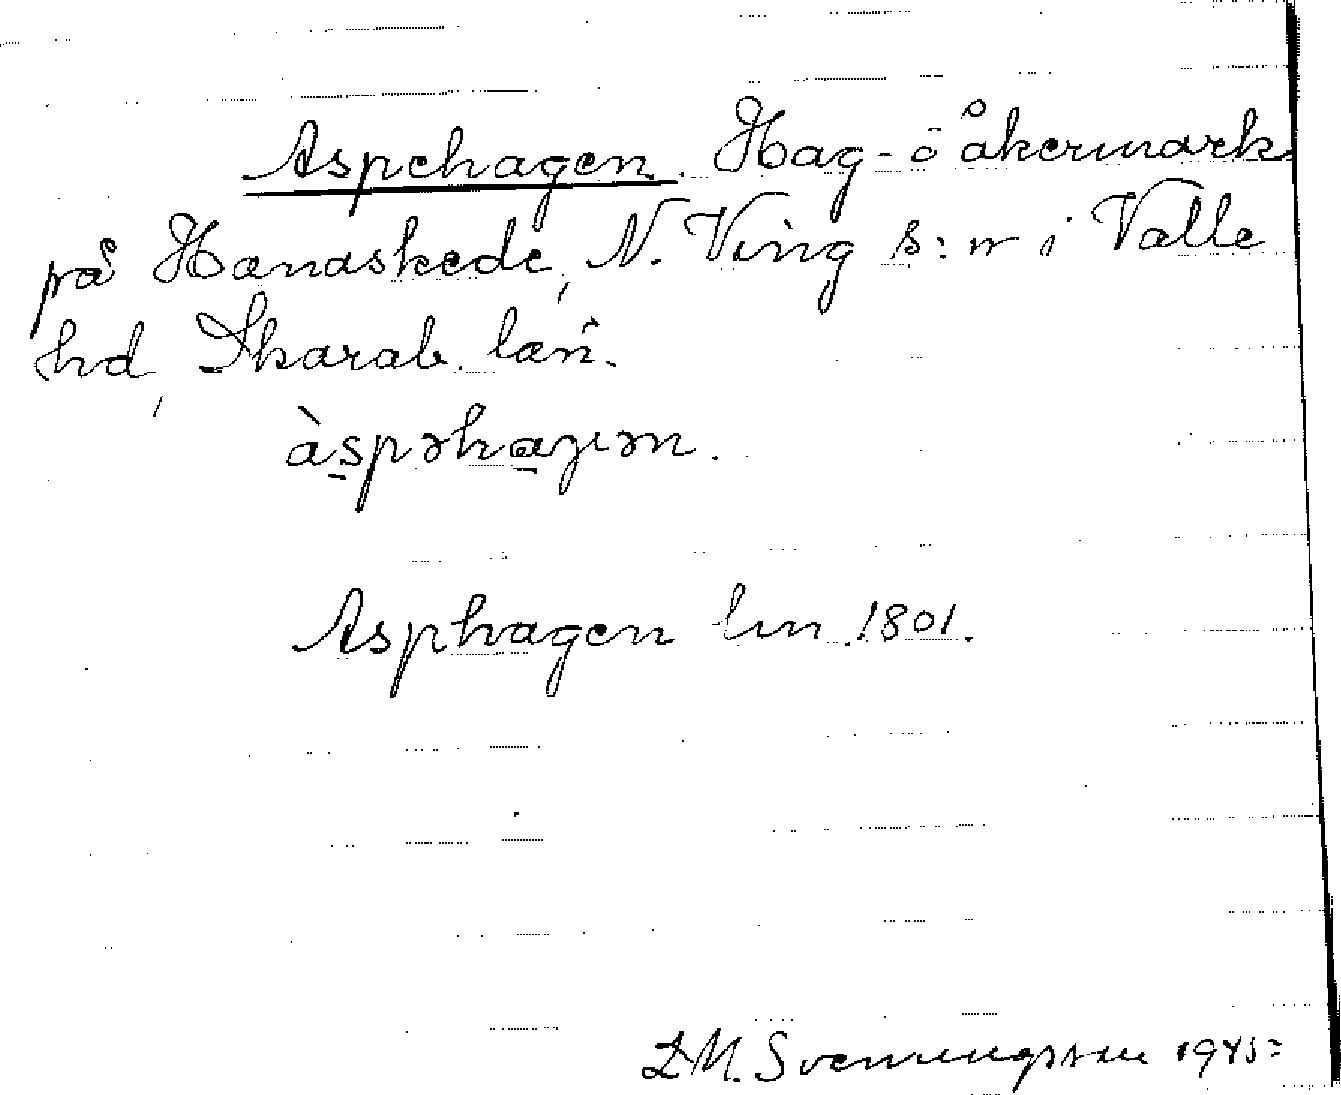 Aspehagen. Hag- o åkermark
på Hanaskede, N. Ving s:n i Valle
hd, Skarab. län.
àspəhaꝫen.
Asphagen lm 1801.
D.M. Svenningsson 1945